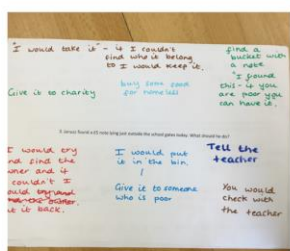 "I would take it" - if I couldn't
find who it belong
to I would keep it.
find a
bucket with
a note
"I found
this - if you
are poor you
can have it.
Give it to charity
buy some food
for homeless
found a £0 note lying just outside the school gates today. What should he do?
I would try
and find the
owner and if
couldn't I
would
it back.
I would put
it in the bin.
Give it to someone
who is poor
Tell the
teacher
You would
check with
the teacher